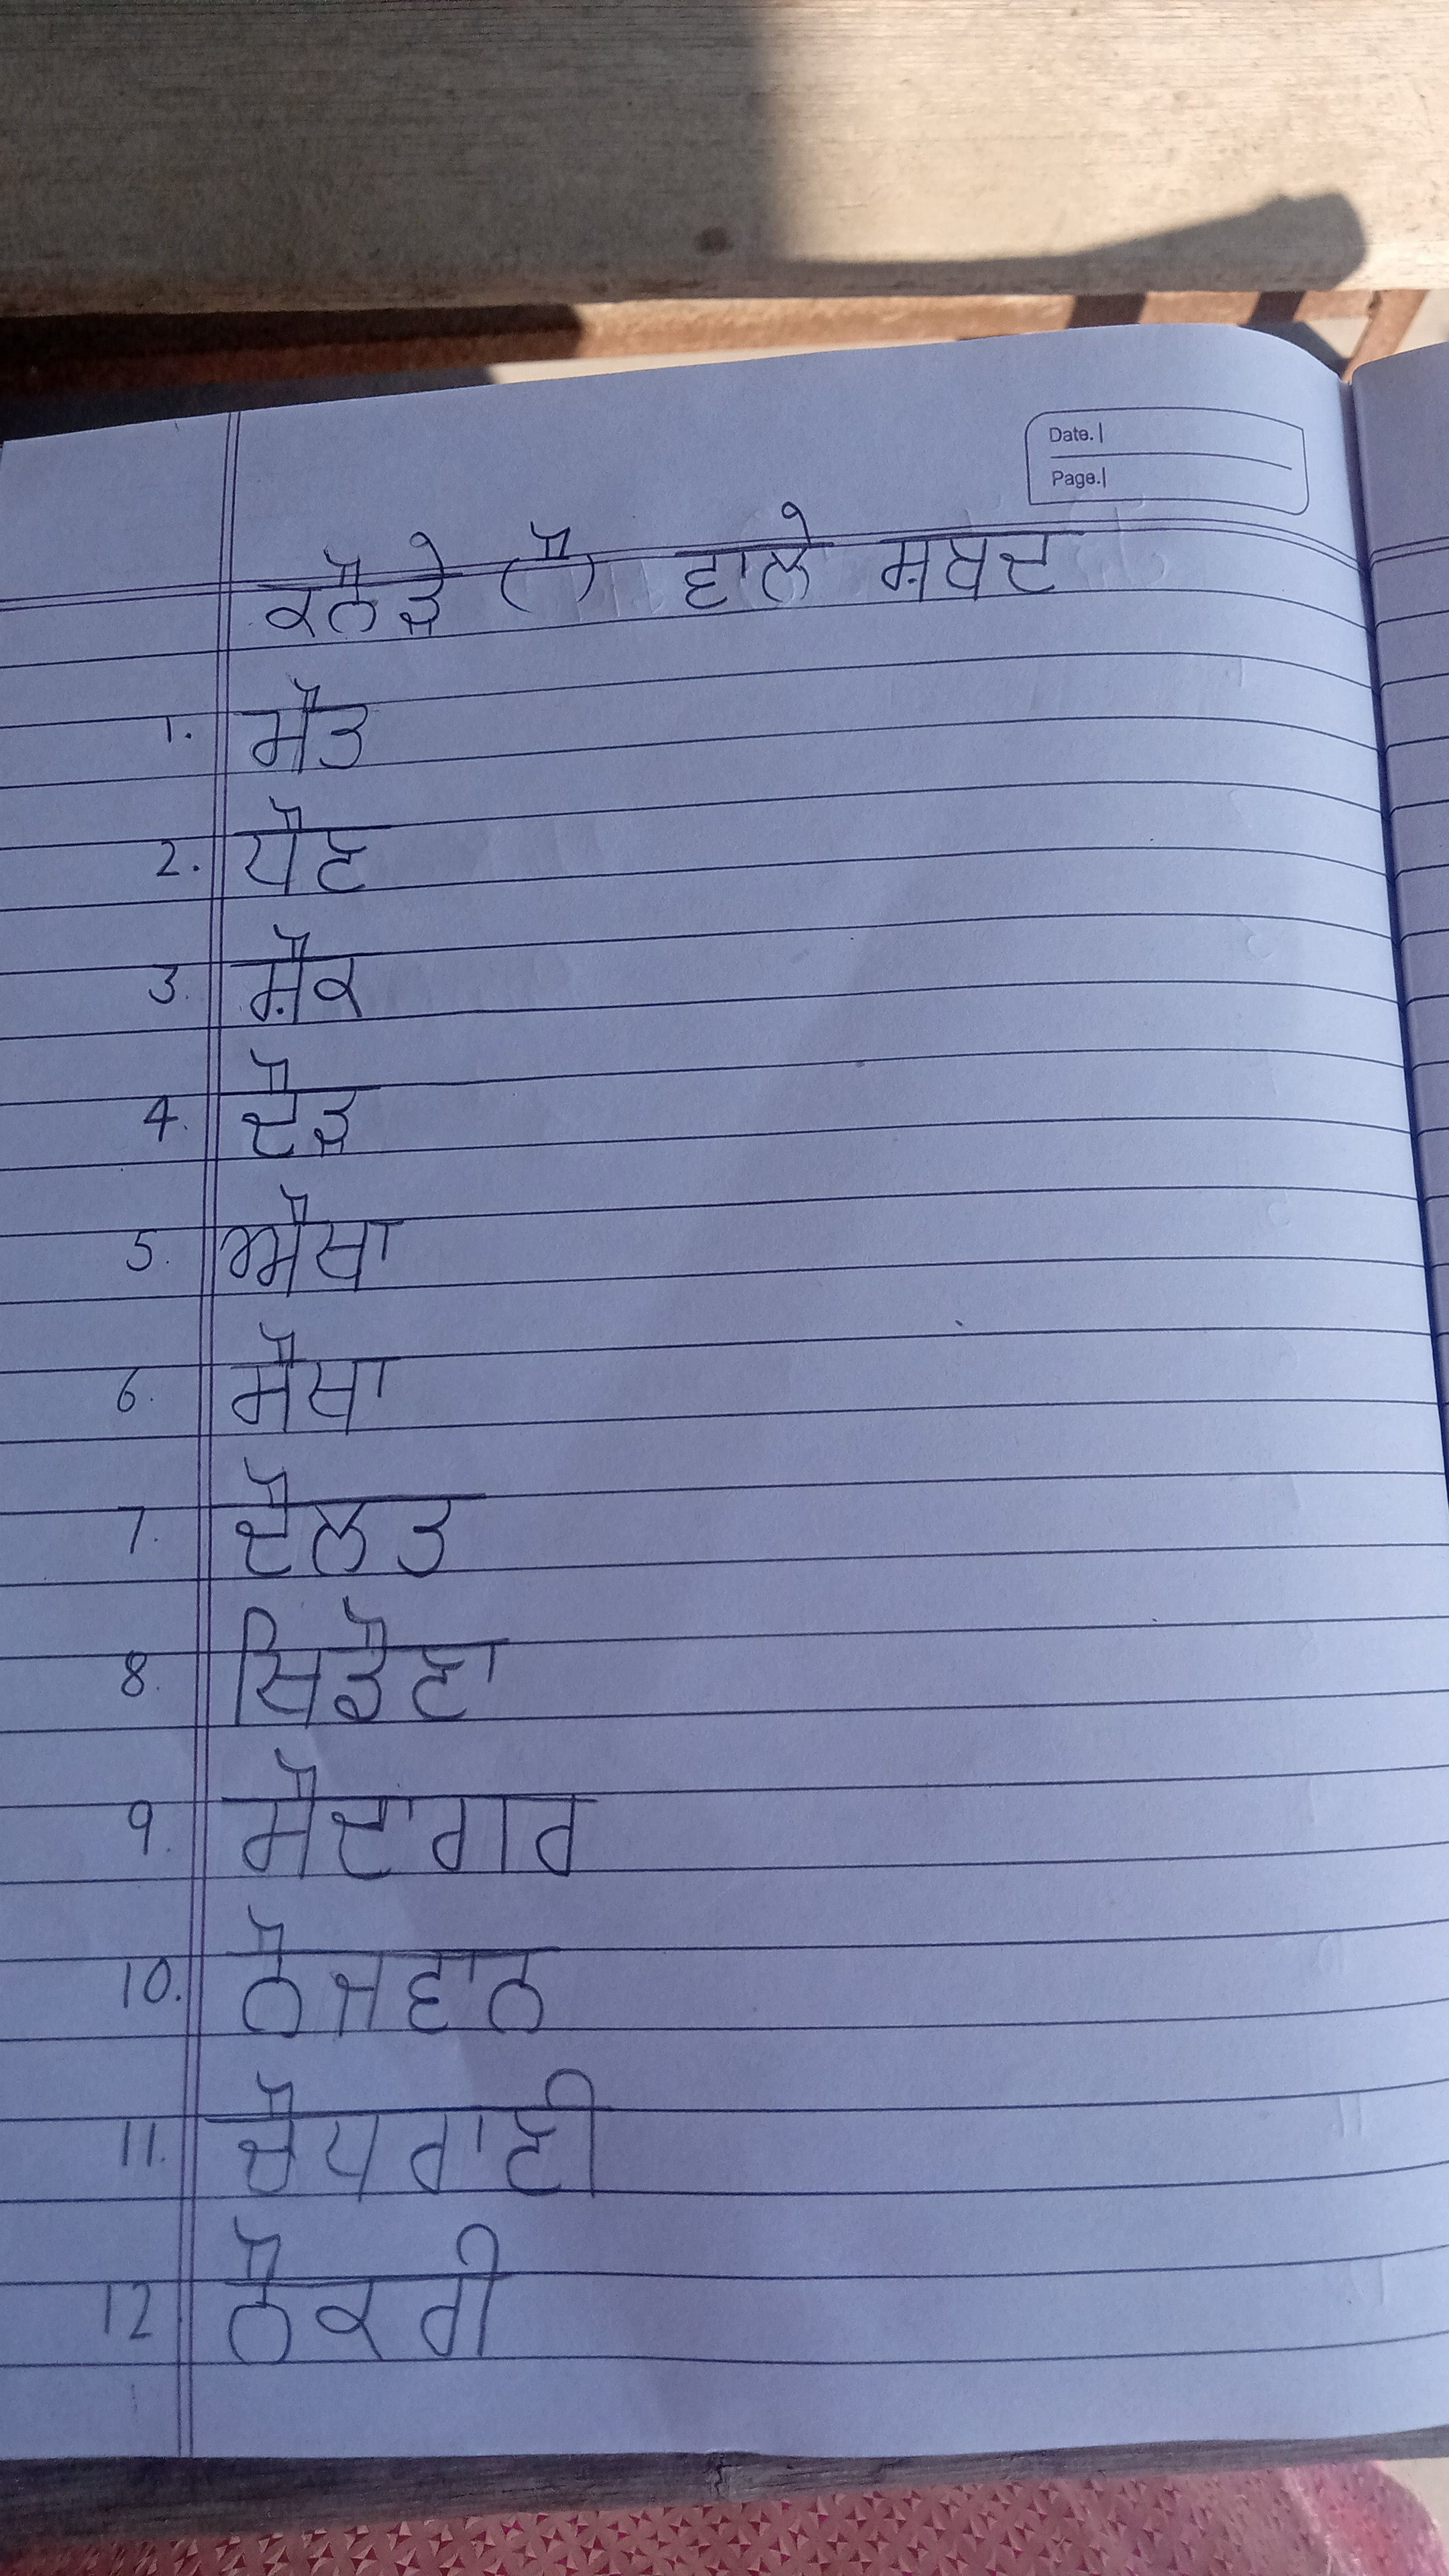 Date.
Page.
ਕਨੌੜੇ (ੌ) ਵਾਲੇ ਸ਼ਬਦ
1. ਮੌਤ
2. ਪੌਣ
3. ਸ਼ੌਕ
4. ਦੌੜ
5. ਔਖਾ
6. ਸੌਖਾ
7. ਦੌਲਤ
8. ਖਿਡੌਣਾ
9. ਸੌਦਾਗਰ
10. ਨੌਜਵਾਨ
11. ਚੌਧਰਾਣੀ
12 ਨੌਕਰੀ